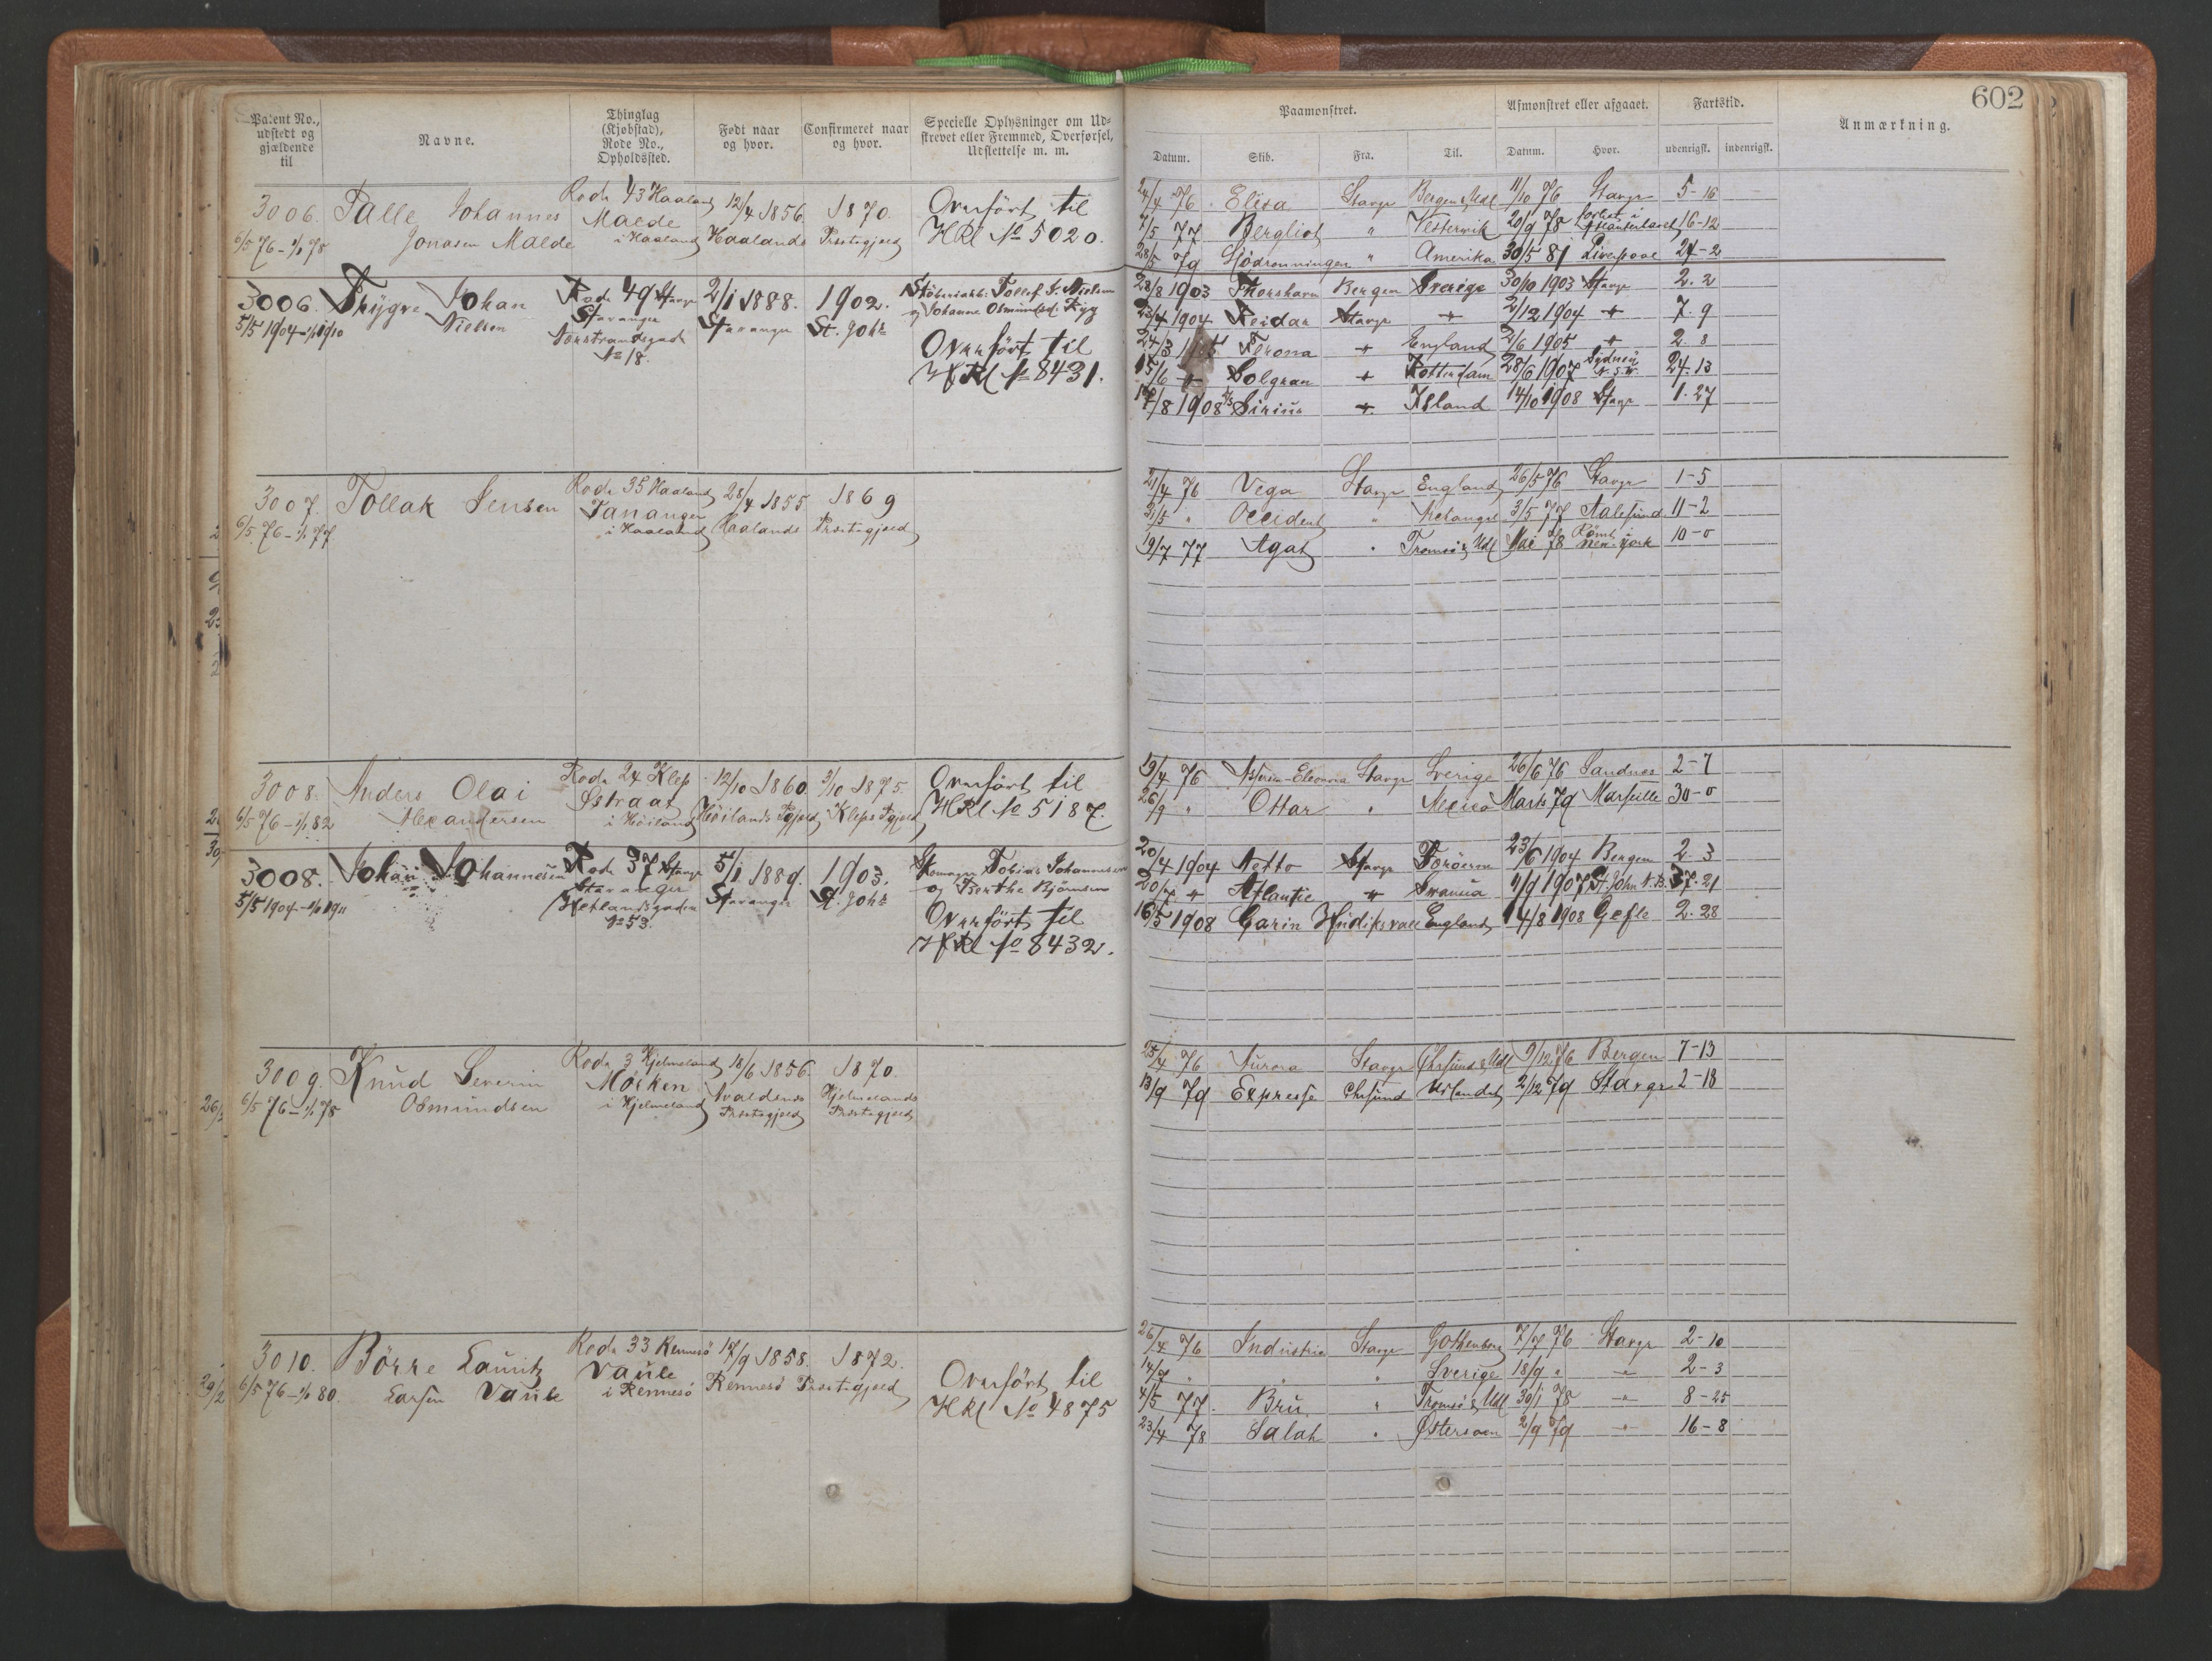 602
Patent No., udstedt og gjældende til
Navne.
Thinglag (Kjøbstad), Rode No., Opholdssted.
Født naar og hvor.
Confirmeret naar og hvor.
Specielle Oplysninger om Udskrevet eller Fremmed, Overførsel, Udslettelse m. m.
Paamønstret.
Afmønstret eller afgaaet.
Fartstid.
Anmærkning.
Datum. Skib. Fra. Til. Datum. Hvor. udenrigsk. indenrigsk.
3006. Palle Johannes Rode 43 Haaland 12/4 1856. 1870. Overført til
6/5 76 - 1/1 78 Jonasen Malde Malde i Haaland Haalands Præstegjeld HRl No 5020.
24/4 76 Elisa Stavgr Bergen & Udl 11/10 76 Stavgr 5-16
7/5 77 Bergliot " Vestervik 20/9 78 forlist i Atlanterhavet 16-12
28/5 79 Sjødronningen " Amerika 30/5 81 Liverpool 24-2
3006. Thrygve Johan Rode 49 Stavgr 2/1 1888. 1902.
5/5 1904 - 1/1 1910 Nielsen Stavanger Stavanger St. Joh:
No 18.
Overført til
HRl No 8431.
28/8 1903 Thorshavn Bergen Sverige 30/10 1903 Stavgr 2. 2
23/4 1904 Reidar Stavgr 2/12 1904 7. 9
24/3 Verona England 2/6 1905 2. 8
15/6 Solgran Rotterdam 28/6 1907 Sydney N.S.W. 24. 13
17/8 1908 Sirius Island 14/10 1908 Stavgr 1. 27
3007. Tollak Jensen Rode 35 Haaland 28/4 1855. 1869
6/5 76 - 1/1 77 Tananger i Haaland Haalands Præstegjeld
21/4 76 Vega Stavgr England 26/5 76 Stavgr 1-5
31/5 " Occident " 3/5 77 Aalesund 11-2
19/7 77 Agat " Tromsø & Udl Mai 78 Rømt New York 10-0
3008. Anders Olai Rode 24 Klep 12/10 1860. 3/10 1875. Overført til
6/5 76 - 1/1 82 Alexandersen Østraat i Høiland Høilands Pgjeld Kleps Pgjeld HRl No 5187.
19/4 76 Stavgr Sverige 26/6 76 Sandnes 2-7
26/9 " Ottar " Mexico Marts 79 Marseille 30-0
3008. Johan Johannesen Rode 37 Stavgr 5/1 1889. 1903. Tobias Johannesen
5/5 1904 - 1/1 1911 Stavanger Stavanger St. Joh: og Berthe Bjørnsen
Hetlandsgaden No 53.
Overført til
HRl No 8432.
20/4 1904 Netto Stavgr Færøerne 23/6 1904 Bergen 2. 3
20/7 Atlantic 11/9 1907 St. John N.B. 37. 21
16/5 1908 Carin Hudiksvall England 14/8 1908 Gefle 2. 28
3009. Knud Severin Rode 3 Hjelmeland 18/6 1856. 1870.
6/5 76 - 1/1 78 Osmundsen i Hjelmeland Præstegjeld Hjelmelands Præstegjeld
25/4 76 Aurora Stavgr Chrsund & Udl 9/12 76 Bergen 7-13
13/9 79 Expresse Chrsund Udlandet 2/12 79 Stavgr 2-18
3010. Børre Lauritz Rode 33 Rennesø 17/9 1858. 1872. Overført til
6/5 76 - 1/1 80. Larsen Vaule Vaule i Rennesø Rennesø Præstegjeld HRl No 4875
26/4 76 Industrie Stavgr Gothenborg 7/7 76 Stavgr 2-10
14/7 " " Sverige 18/9 " 2-3
4/5 77. Bru " Tromsø & Udl 30/1 78 8-25
23/4 78 Salah " Østersøen 2/9 79 16-8